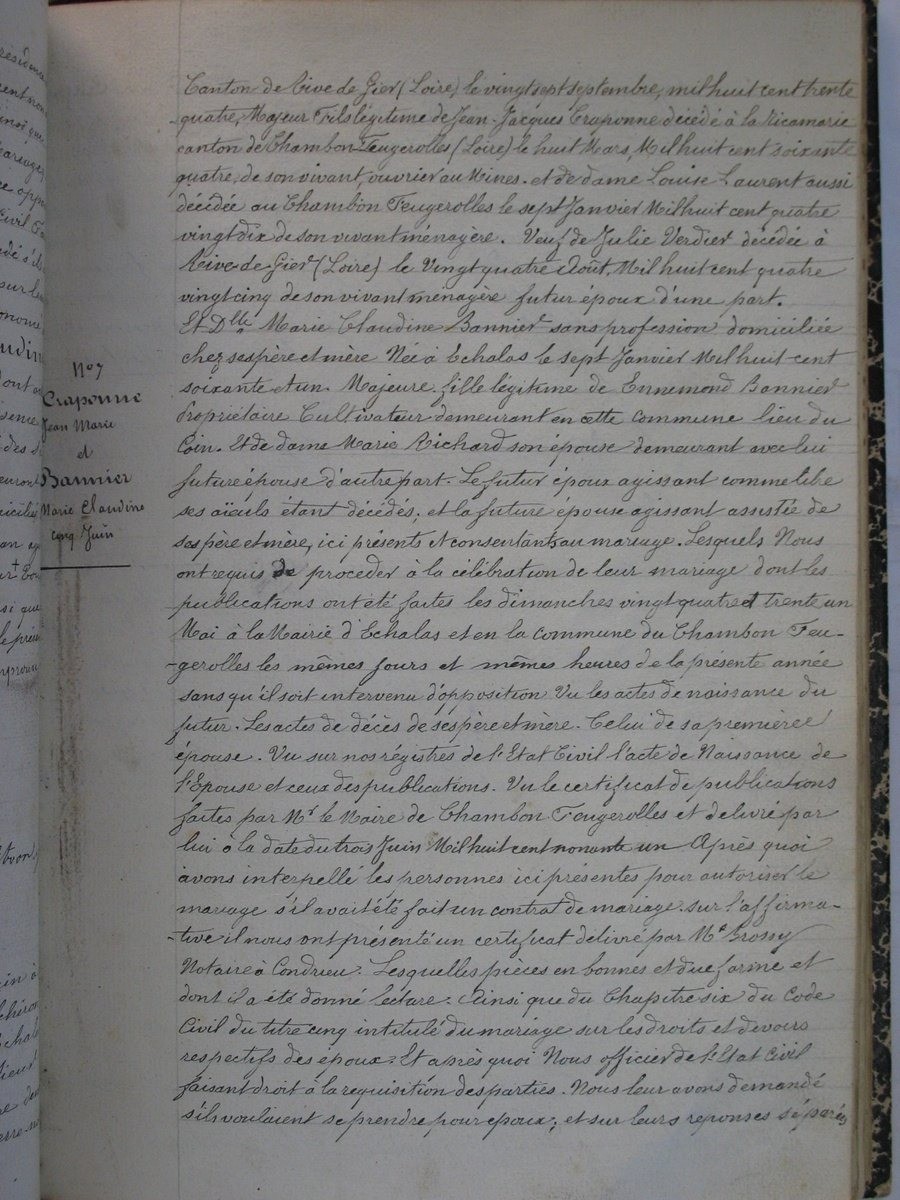 N° 7
Craponne
Jean Marie
et
Bannier
Marie Claudine
cinq Juin
Canton de Rive de Gier (Loire), le vingt sept septembre, mil huit cent trente
-quatre, Majeur Fils légitime de Jean-Jacques Craponne décédé à la Ricamarie
canton de Chambon-Feugerolles (Loire) le huit Mars, Mil huit cent soixante
quatre, de son vivant, ouvrier au Mines. et de dame Louise Laurent aussi
décédée au Chambon Feugerolles le sept Janvier Mil huit cent quatre
vingt dix de son vivant ménagère. Veuf de Julie Verdier décédée à
Rive-de-Gier (Loire) le Vingt quatre Août, Mil huit cent quatre
vingt cinq de son vivant ménagère futur époux d'une part.
Et Dlle Marie Claudine Bannier sans profession domiciliée
chez ses père et mère Née à Echalas le sept Janvier Mil huit cent
soixante et un. Majeure, fille légitime de Ennemond Bannier
Propriétaire Cultivateur demeurant en cette commune lieu du
Coin. Et de dame Marie Richard son épouse demeurant avec lui
future épouse d'autre part. Le futur époux agissant comme libre
ses aïeuls étant décédés; et la future épouse agissant assistée de
ses père et mère, ici présents et consentants au mariage. Lesquels Nous
ont requis de proceder à la célébration de leur mariage dont les
publications ont été faites les dimanches vingt quatre et trente un
Mai à la Mairie d'Echalas et en la commune du Chambon Feu-
-gerolles les mêmes jours et mêmes heures de la présente année
sans qu'il soit intervenu d'opposition Vu les actes de naissance du
futur. Les actes de décès de ses père et mère. Celui de sa première
épouse. Vu sur nos régistres de l'Etat Civil l'acte de Naissance de
l'Epouse et ceux des publications. Vu le certificat de publications
faites par Mr le Maire de Chambon Feugerolles et delivré par
lui à la date du trois Juin Mil huit cent nonante un Après quoi
avons interpellé les personnes ici présentes pour autoriser le
mariage s'il avait été fait un contrat de mariage. sur l'affirma-
-tive il nous ont présenté un certificat delivré par Me Brossy
Notaire à Condrieu. Lesquelles pièces en bonnes et due forme et
dont il a été donné lecture. Ainsi que du Chapitre six du Code
Civil du titre cinq intitulé du mariage sur les droits et devoirs
respectifs des époux. Et après quoi Nous officier de l'Etat Civil
faisant droit à la requisition des parties. Nous leur avons demandé
s'ils voulaient se prendre pour époux; et sur leurs reponses séparées